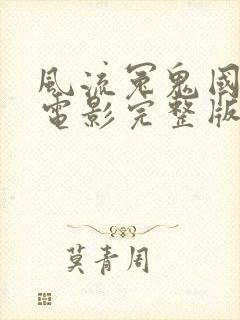 風流冤鬼國
電影完整版
莫青周